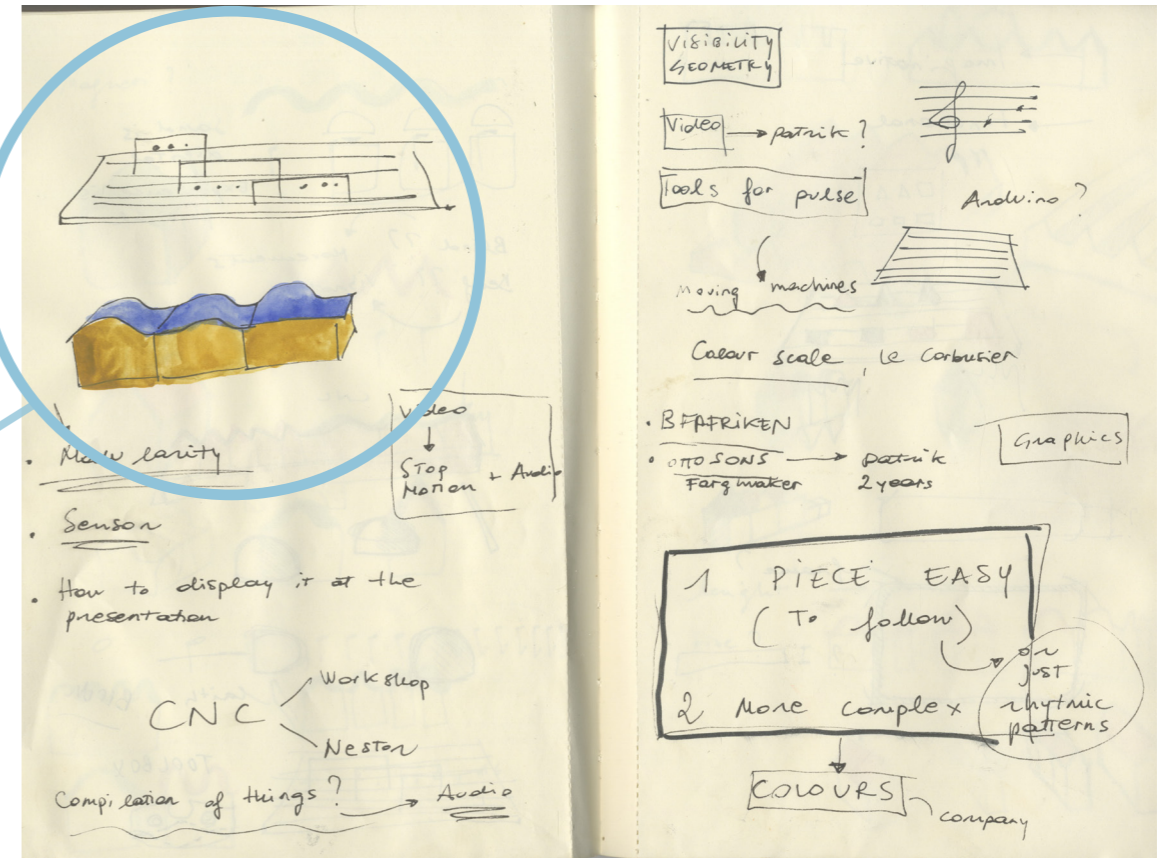 Modularity
Sensor
How to display it at the
presentation
Video
Stop
Motion + Audio
CNC
Workshop
Nestor
Compilation of things?
Audio
VISIBILITY
GEOMETRY
Video → patrik?
Tools for pulse
Arduino?
Moving machines
Colour scale, le Corbusier
BFAFRIKEN
OTTOSONS → patrik
Fargmaker 2 years
Graphics
1 PIECE EASY
(To follow)
or
just
rhytmic
patterns
2 More complex
COLOURS
company